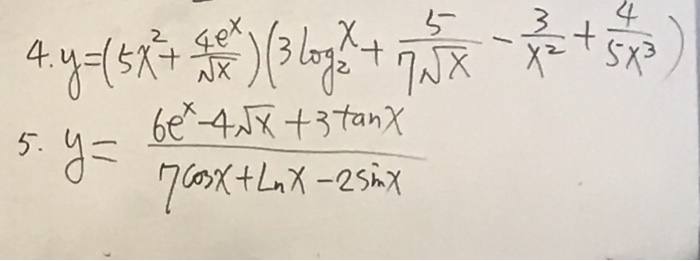 4. y=(5x²+\frac{4e^x}{\sqrt{x}})(3log₂^x+\frac{5}{7\sqrt{x}}-\frac{3}{x²}+\frac{4}{5x³})
5. y=\frac{6e^x-4\sqrt{x}+3tanx}{7cosx+Lnx-2sinx}